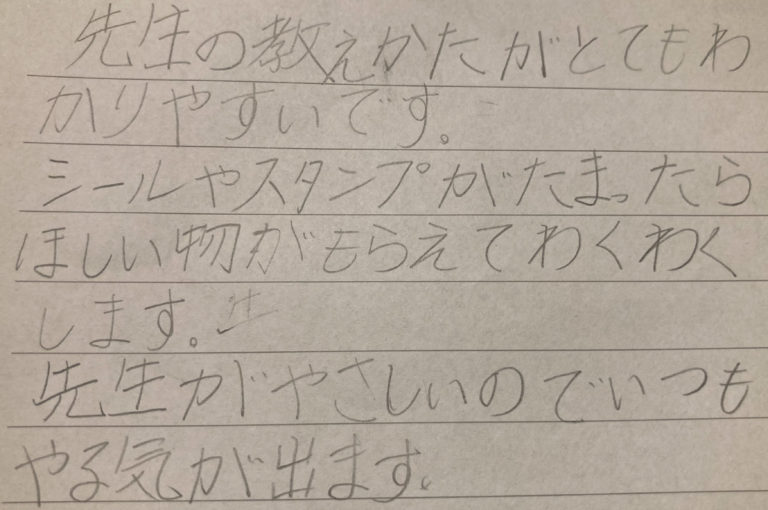 先生の教えかたがとてもわ
かりやすいです。
シールやスタンプがたまったら
ほしい物がもらえてわくわく
します。
先生がやさしいのでいつも
やる気が出ます。